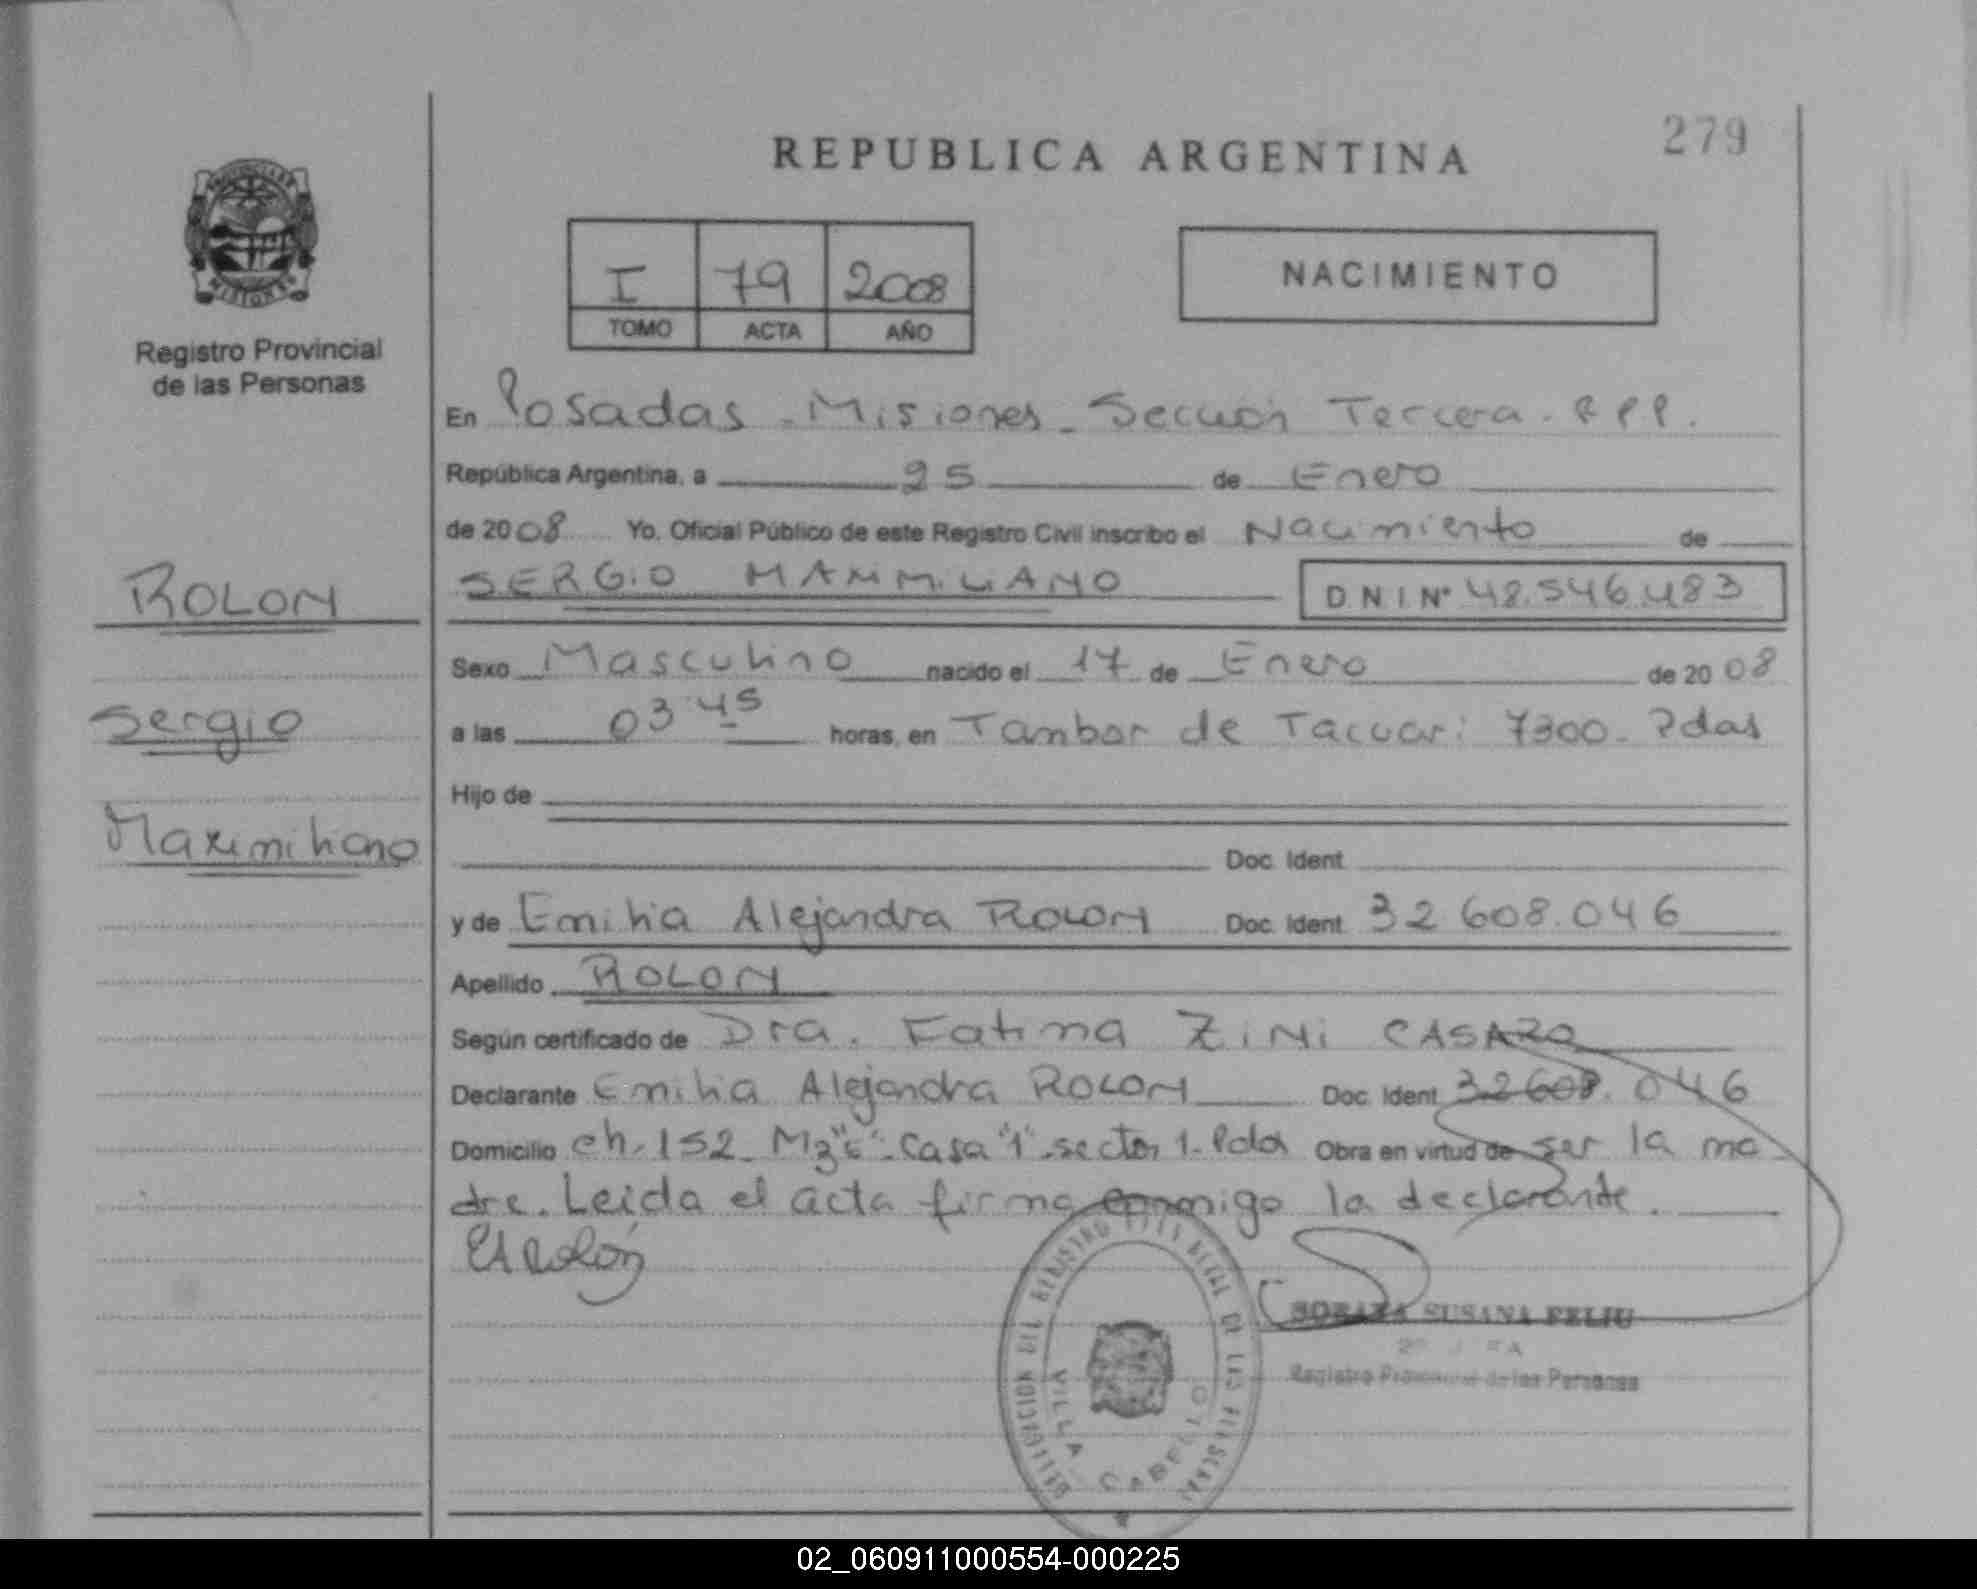 279
REPUBLICA ARGENTINA
I 79 2008
TOMO ACTA AÑO
NACIMIENTO
MISIONES
Registro Provincial
de las Personas
ROLON
Sergio
Maximiliano
En Posadas - Misiones - Sección Tercera - RPP.
República Argentina, a 25 de Enero
de 2008 Yo, Oficial Público de este Registro Civil inscribo el Nacimiento de
SERGIO MAXIMILIANO D.N.I. Nº 48.546.483
Sexo Masculino nacido el 17 de Enero de 2008
a las 03 45 horas, en Tambor de Tacuari 7300 - Pdas
Hijo de
Doc. Ident.
y de Emilia Alejandra ROLON Doc. Ident. 32 608.046
Apellido ROLON
Según certificado de Dra. Fatima ZiNi CASARO
Declarante Emilia Alejandra ROLON Doc. Ident. 32608.046
Domicilio ch. 152 - Mz - Casa "1" - sector 1 - Pdas Obra en virtud de ser la ma
dre. Leida el acta firma conmigo la declarante.
EARolón
DELEGACION DEL REGISTRO PROVINCIAL DE LAS PERSONAS
VILLA CABELLO
SORAYA SUSANA FELIU
Registro Provincial de las Personas
02_060911000554-000225